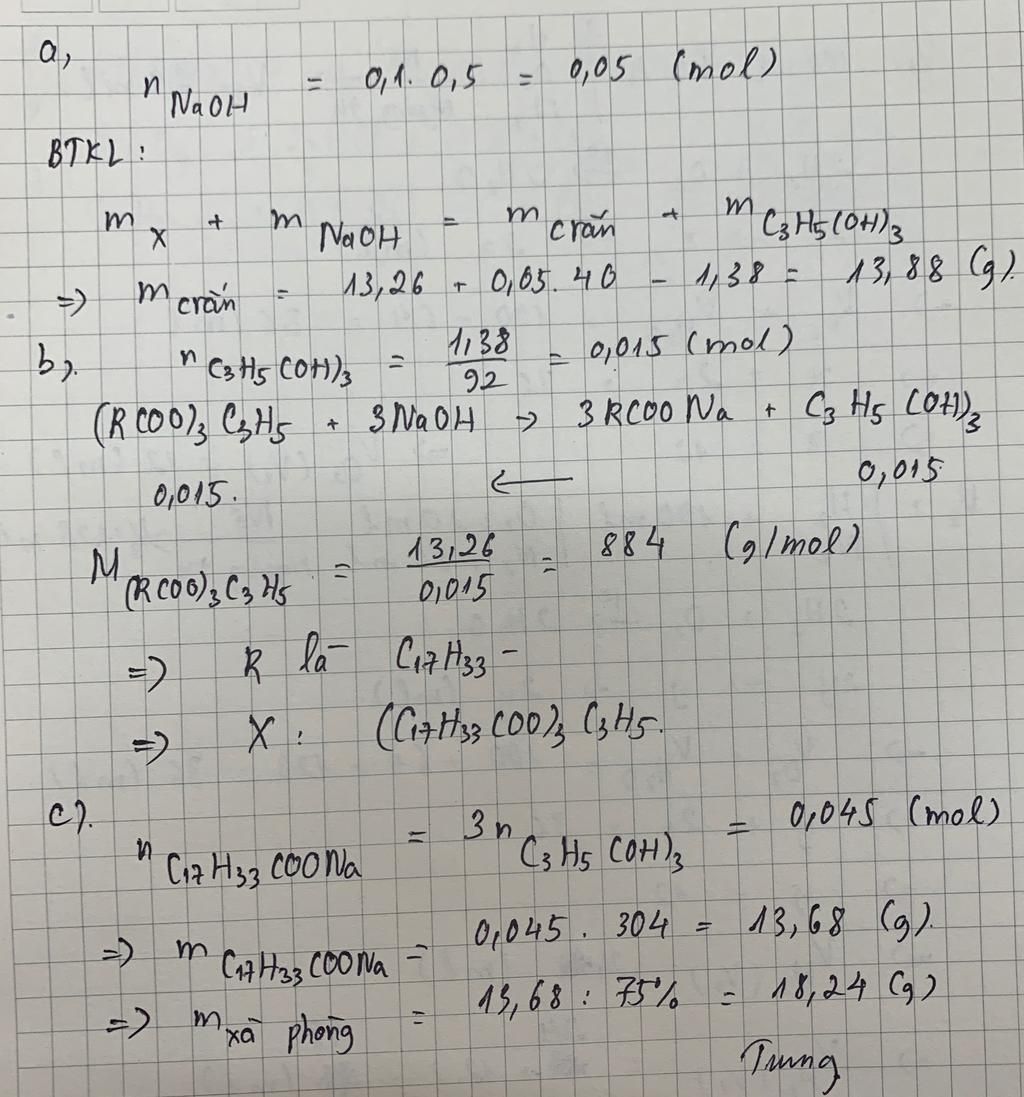 a,
n NaOH = 0,1. 0,5 = 0,05 (mol)
BTKL :
m X + m NaOH = m crắn + m C3H5(OH)3
=> m crắn = 13,26 + 0,05. 40 - 1,38 = 13,88 (g).
b). n C3H5(OH)3 = 1,38/92 = 0,015 (mol)
(RCOO)3 C3H5 + 3NaOH → 3RCOONa + C3H5(OH)3
0,015. ← 0,015
M (RCOO)3C3H5 = 13,26/0,015 = 884 (g/mol)
=> R là C17H33 -
=> X : (C17H33COO)3 C3H5.
c). n C17H33COONa = 3n C3H5(OH)3 = 0,045 (mol)
=> m C17H33COONa = 0,045 . 304 = 13,68 (g).
=> m xà phòng = 13,68 : 75% = 18,24 (g)
Trung